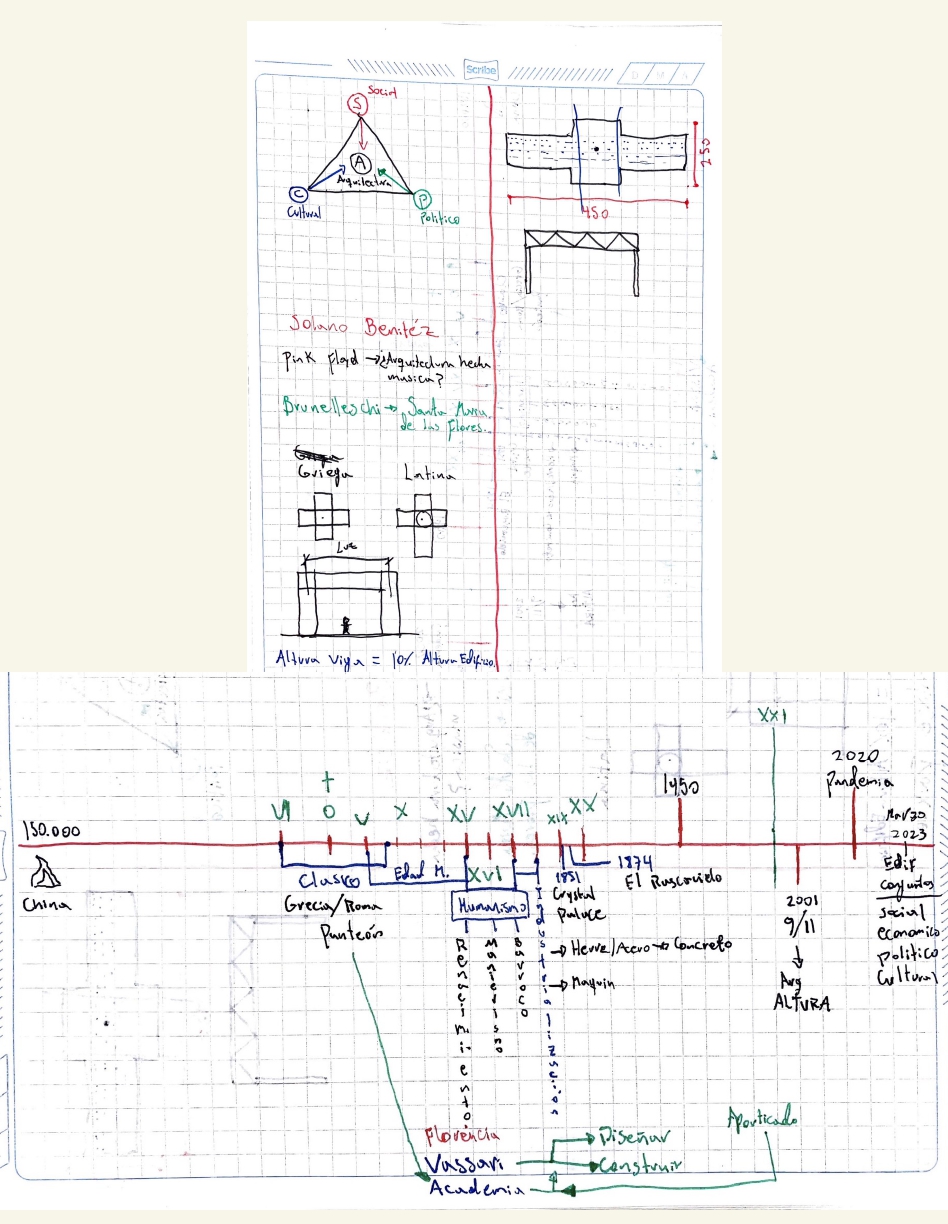 Scribe
D / M / A
S Social
A
Arquitectura
C
Cultural
P
Politico
450
250
Solano Benitéz
Pink Floyd → ¿Arquitectura hecha
musica?
Brunelleschi → Santa Maria
de las Flores.
Griega
Latina
Luz
Altura viga = 10% Altura Edificio.
XXI
2020
Pandemia
1450
†
VI
0
V
X
XV
XVII
XIX
XX
150.000
Marzo
2023
China
Clasico
Edad M.
XVI
1874
El Rascacielo
1851
Crystal
Palace
Edif
conjuntos
Social
economico
politico
Cultural
Grecia/Roma
Panteón
Humanismo
2001
9/11
Arq
ALTURA
→ Hierro/Acero → Concreto
→ Maquin
Renacimiento
Manierismo
Barroco
Industrialización
Florencia
Vassari
Academia
Diseñar
Construir
Aporticado